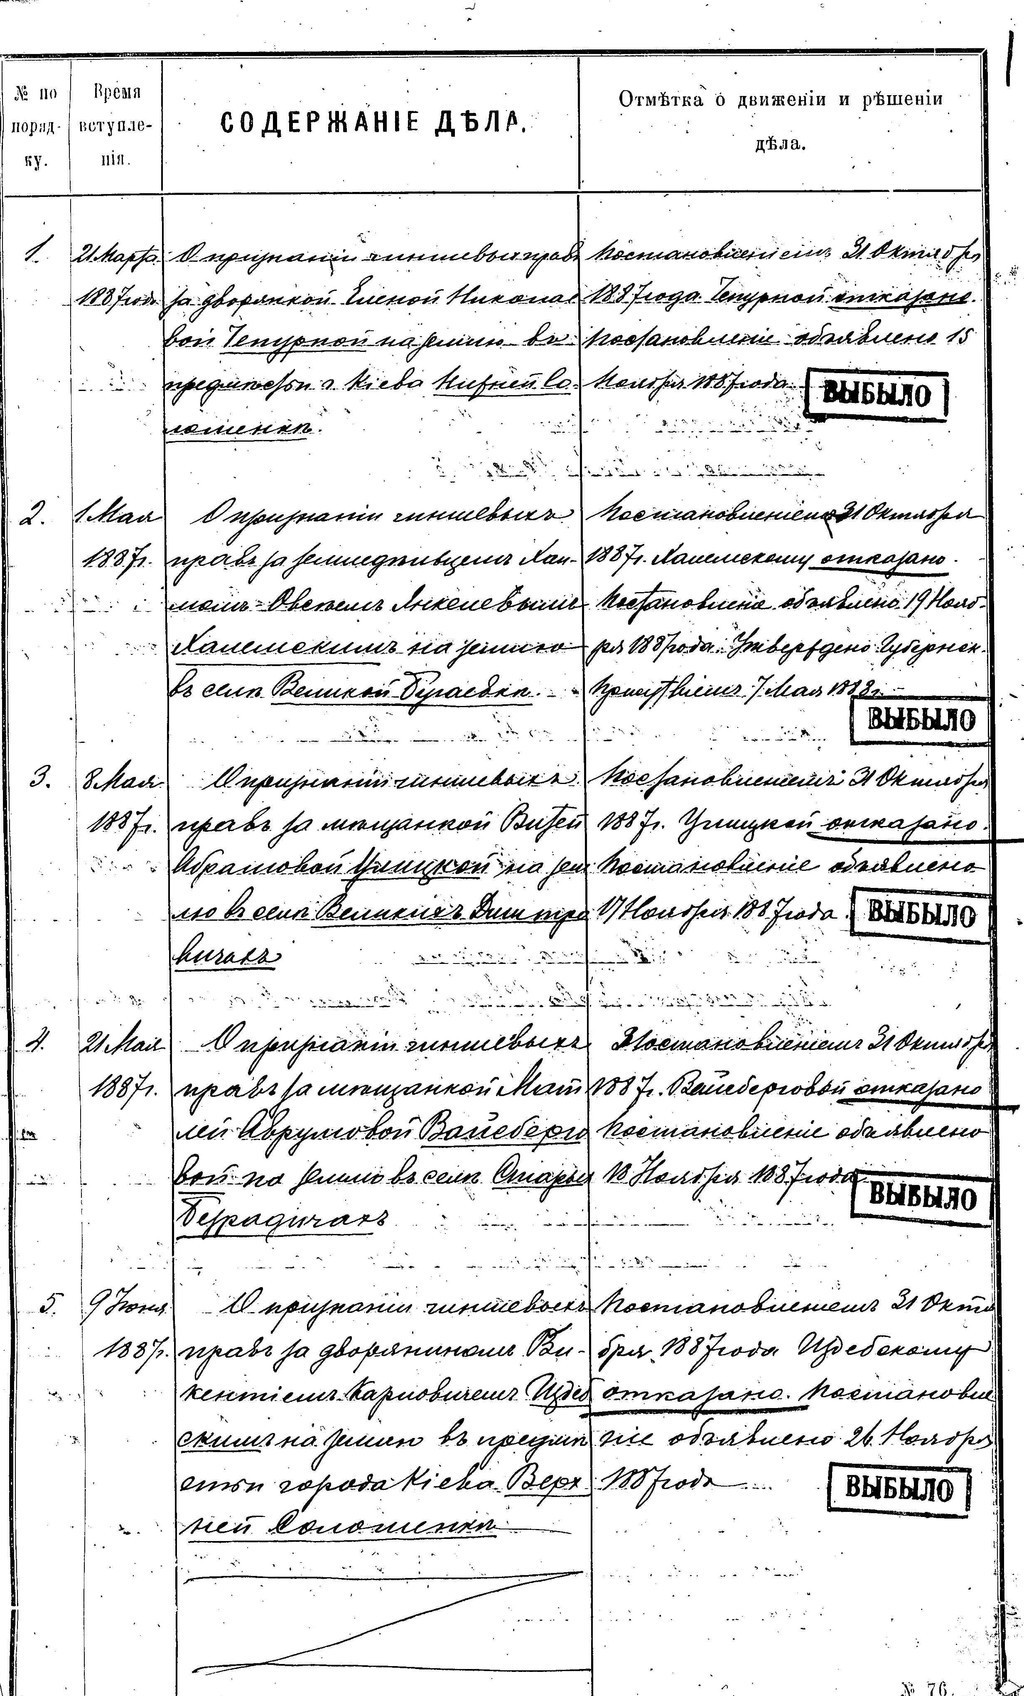 № по поряд- ку.
Время вступле- нія.
СОДЕРЖАНІЕ ДѢЛА.
Отмѣтка о движеніи и рѣшеніи
дѣла.
1.
21 Марта
1887 года
О признаніи чиншевыхъ правъ
за дворянкой Еленой Никола
вой Тепурной на землю въ
предмѣстьи г. Кіева Нижней Со
ломенкѣ.
Постановленіемъ 31 Октября
1887 года Тепурной отказано.
Постановленіе объявлено 15
Ноября 1887 года.
ВЫБЫЛО
2.
1 Мая
1887 г.
О признаніи чиншевыхъ
правъ за земледѣльцемъ Хаи-
момъ-Овсѣемъ Янкелевымъ
Халемскимъ на землю
въ селѣ Великой Бугаевкѣ.
Постановленіемъ 31 Октября
1887 г. Халемскому отказано.
Постановленіе объявлено 19 Нояб-
ря 1887 года. Утверждено Губернск.
Присутствіемъ 7 Мая 1888 г.
ВЫБЫЛО
3.
8 Мая
1887 г.
О признаніи чиншевыхъ
правъ за мѣщанкой
Абрамовой Улицкой на зем
лю въ селѣ Великихъ Дмитро
вичахъ
Постановленіемъ 31 Октября
1887 г. Улицкой отказано.
Постановленіе объявлено
17 Ноября 1887 года.
ВЫБЫЛО
4.
21 Мая
1887 г.
О признаніи чиншевыхъ
правъ за мѣщанкой Мат
лей Аврумовой Вайсберго
вой на землю въ селѣ Старых
Безрадичахъ
Постановленіемъ 31 Октября
1887 г. Вайсберговой отказано
Постановленіе объявлено
18 Ноября 1887 года
ВЫБЫЛО
5.
9 Іюня
1887 г.
О признаніи чиншевыхъ
правъ за дворяниномъ Ви-
кентіемъ Карповичемъ Издеб
скимъ на землю въ предмѣ
стьи города Кіева Верх
ней Соломенкѣ
Постановленіемъ 31 Октя
бря 1887 года Издебскому
отказано. Постановле
ніе объявлено 26 Ноября
1887 года
ВЫБЫЛО
№ 76.